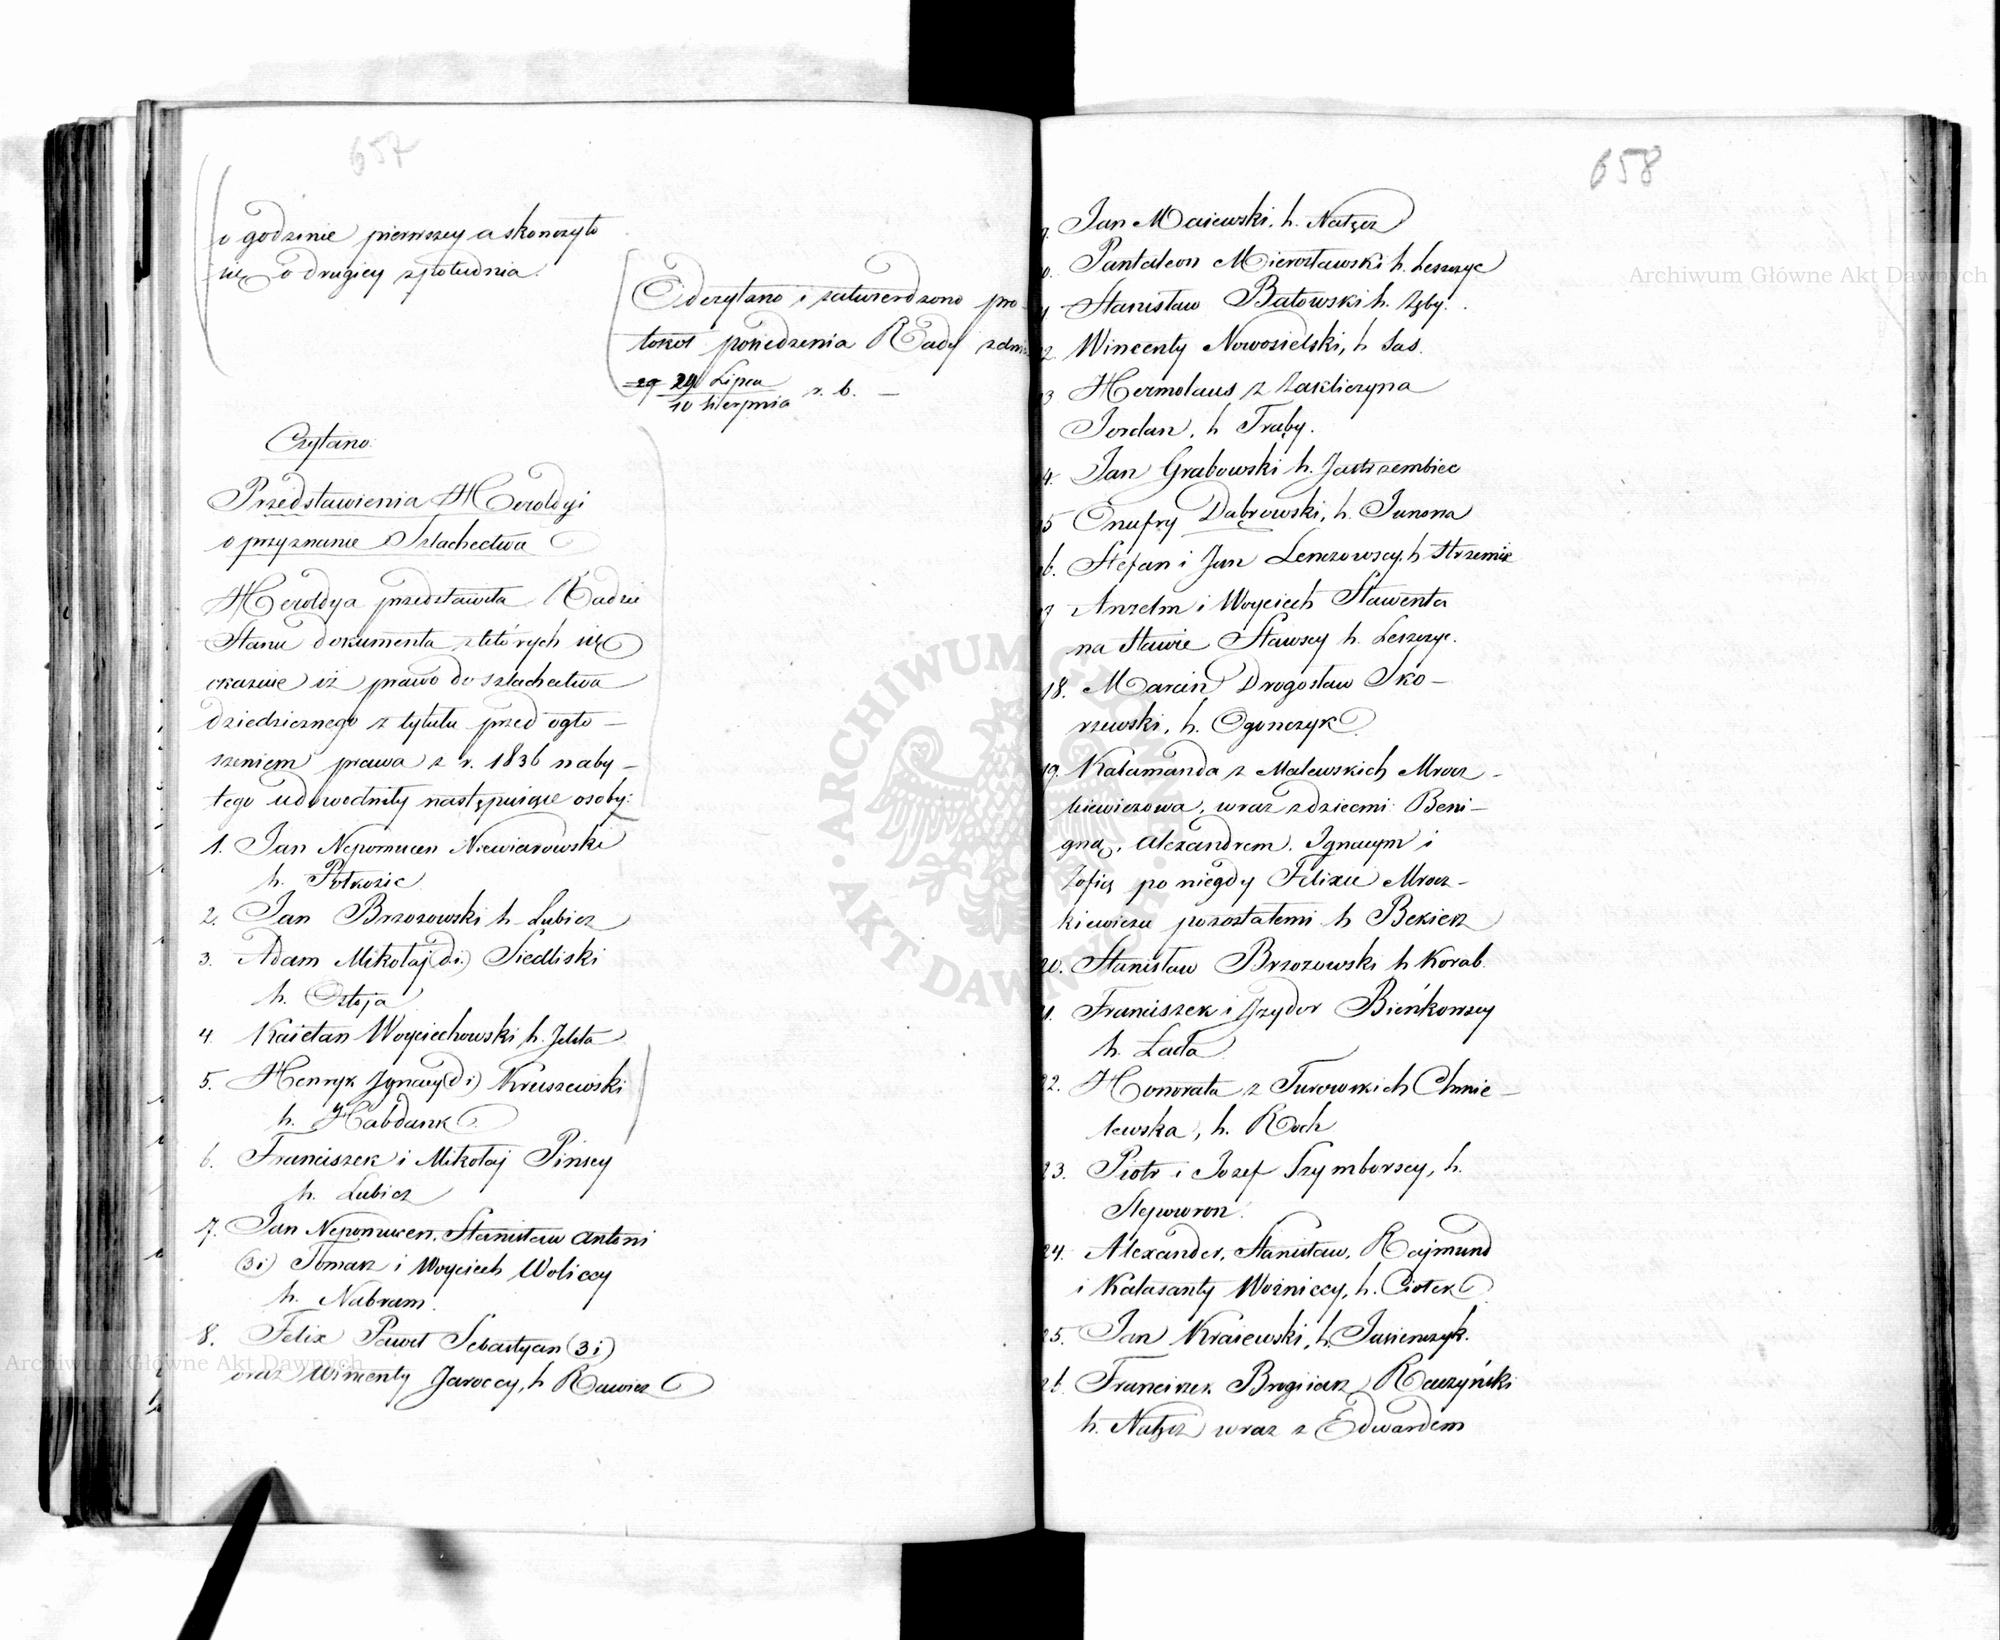 657
o godzinie pierwszey a skonczyło
się o drugiey z południa.
Odczytano i zatwierdzono pro-
tokoł posiedzenia Rady z dnia
29 Lipca
10 Sierpnia r. b. —
Czytano:
Przedstawienia Heroldyi
o przyznanie Szlachectwa
Heroldya przedstawiła Radzie
Stanu dokumenta z których się
okazuie iż prawo do szlachectwa
dziedzicznego z tytułu przed ogło-
szeniem prawa z r. 1836 naby-
tego udowodniły następuiące osoby:
1. Jan Nepomucen Niewiarowski
h. Półkozic
2. Jan Brzozowski h. Lubicz
3. Adam Mikołaj (2 i.) Siedliski
h. Ostoja
4. Kaietan Woyciechowski h. Jelita
5. Henryk Ignacy (2 i) Kruszewski
h. Habdank
6. Franciszek i Mikołaj Pinscy
h. Lubicz
7. Jan Nepomucen, Stanisław Antoni
(3 i) Tomasz i Woyciech Woliccy
h. Nabram.
8. Felix Paweł Sebastyan (3 i)
oraz Wincenty Jaroccy, h. Rawicz
658
9. Jan Maiewski, h. Nałęcz
0. Pantaleon Mierosławski h. Leszczyc
Stanisław Batowski h. Zęby.
2. Wincenty Nowosielski, h. Sas.
3 Hermolaus z Zakliczyna
Jordan, h. Trąby.
4. Jan Grabowski h. Jastrzembiec
5 Onufry Dąbrowski, h. Junona
6. Stefan i Jan Lenczowscy, h. Strzemie
7 Anzelm i Woyciech Sławenta
na Sławie Sławscy h. Leszczyc.
18. Marcin Drogosław Sko-
rzewski, h. Ogonczyk
19. Kałamanda z Malewskich Mrocz-
kiewiczowa, wraz z dziecmi: Beni-
gną, Alexandrem, Ignacym i
Zofią po niegdy Felixie Mrocz-
kiewiczu pozostałemi h Bekiesz
20. Stanisław Brzozowski h Korab.
21. Franciszek i Izydor Bieńkowscy
h. Łada
22. Honorata z Turowskich Chmie-
lewska, h. Roch
23. Piotr i Jozef Szymborscy, h.
Slepowron.
24. Alexander, Stanisław, Rajmund
i Kalasanty Wozniccy, h. Ciołek
25. Jan Kraiewski, h. Jasienczyk.
26. Franciszek Raczyński
h. Nałęcz wraz z Edwardem
Archiwum Główne Akt Dawnych
Archiwum Główne Akt Dawnych
ARCHIWUM GŁÓWNE AKT DAWNYCH